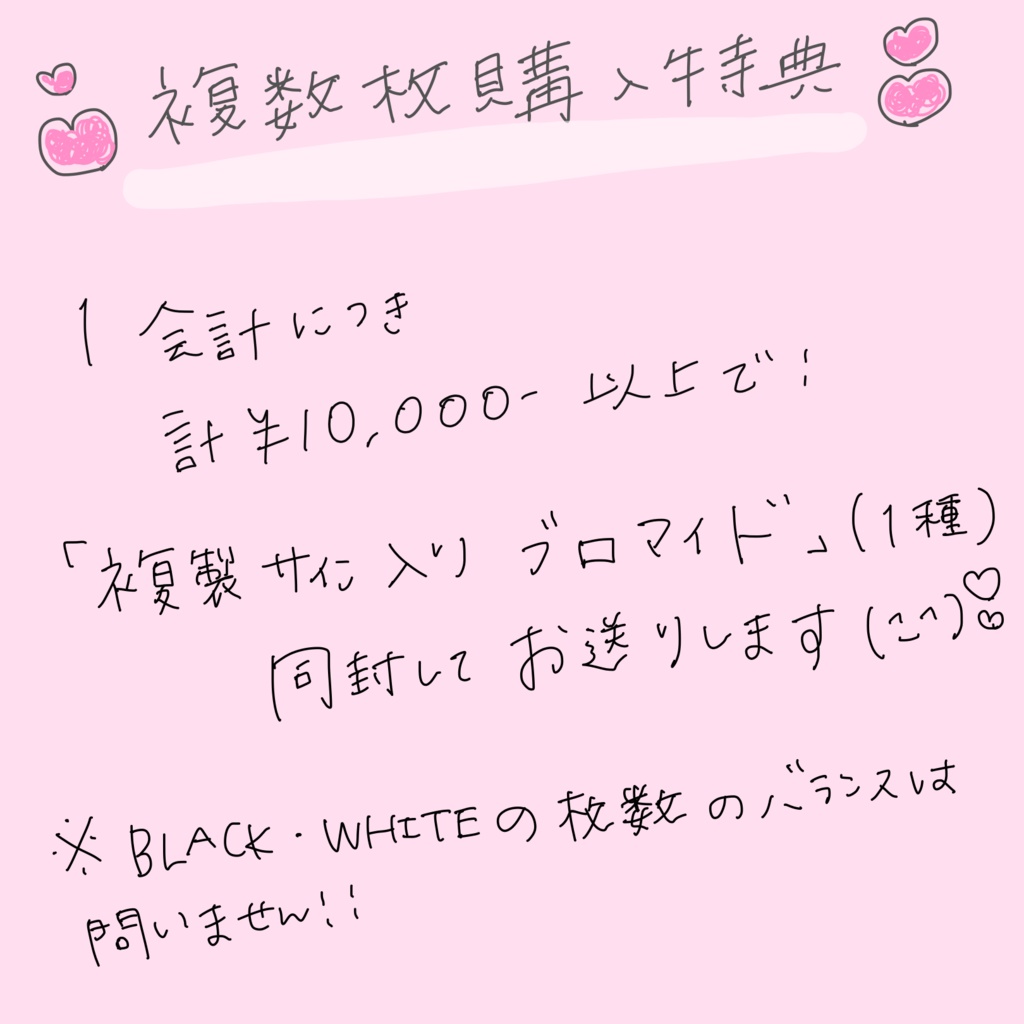 複数枚購入特典
1会計につき
計¥10,000-以上で!
「複製サイン入りブロマイド」(1種)
同封してお送りします(^-^)♡♡
※BLACK・WHITEの枚数のバランスは
問いません!!